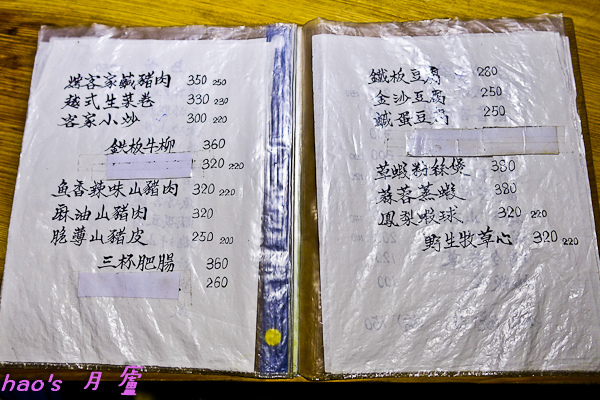 烤客家鹹豬肉 350 250
越式生菜卷 330 230
客家小炒 300 220
鉄板牛柳 360
320 220
魚香辣味山豬肉 320 220
麻油山豬肉 320
脆薄山豬皮 250 200
三杯肥腸 360
260
鐵板豆腐 280
金沙豆腐 250
鹹蛋豆腐 250
草蝦粉絲煲 380
蒜蓉蒸蝦 380
鳳梨蝦球 320 220
野生牧草心 320 220
hao's 月廬